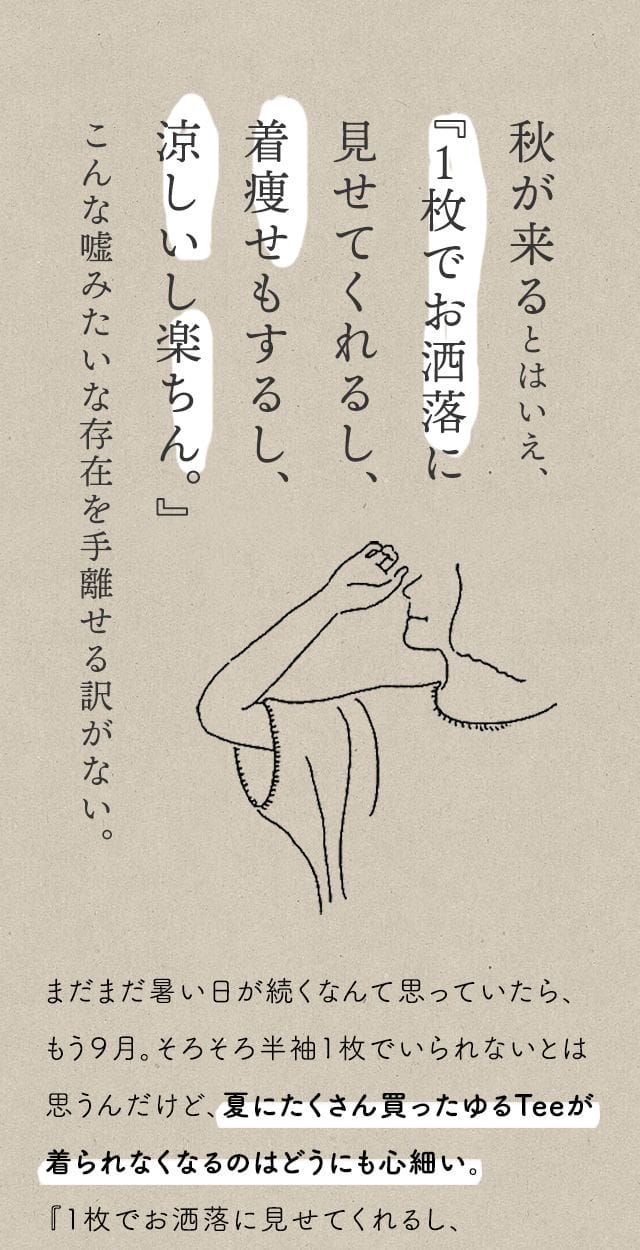 秋が来るとはいえ、
『1枚でお洒落に
見せてくれるし、
着痩せもするし、
涼しいし楽ちん。』
こんな嘘みたいな存在を手離せる訳がない。
まだまだ暑い日が続くなんて思っていたら、
もう9月。そろそろ半袖1枚でいられないとは
思うんだけど、夏にたくさん買ったゆるTeeが
着られなくなるのはどうにも心細い。
『1枚でお洒落に見せてくれるし、